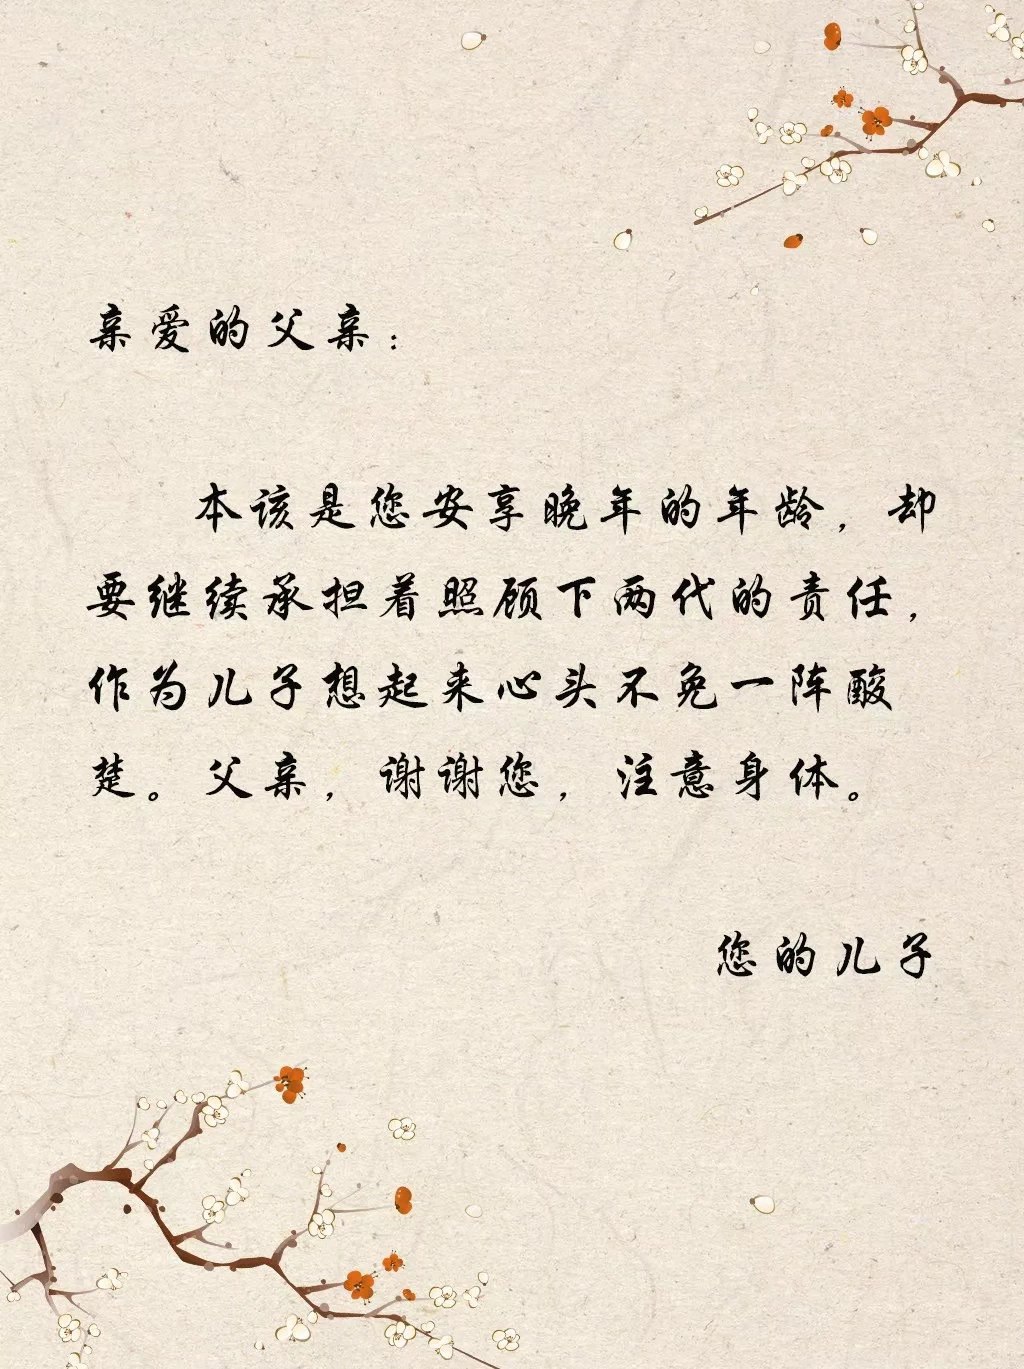 亲爱的父亲：
本该是您安享晚年的年龄，却
要继续承担着照顾下两代的责任，
作为儿子想起来心头不免一阵酸
楚。父亲，谢谢您，注意身体。
您的儿子